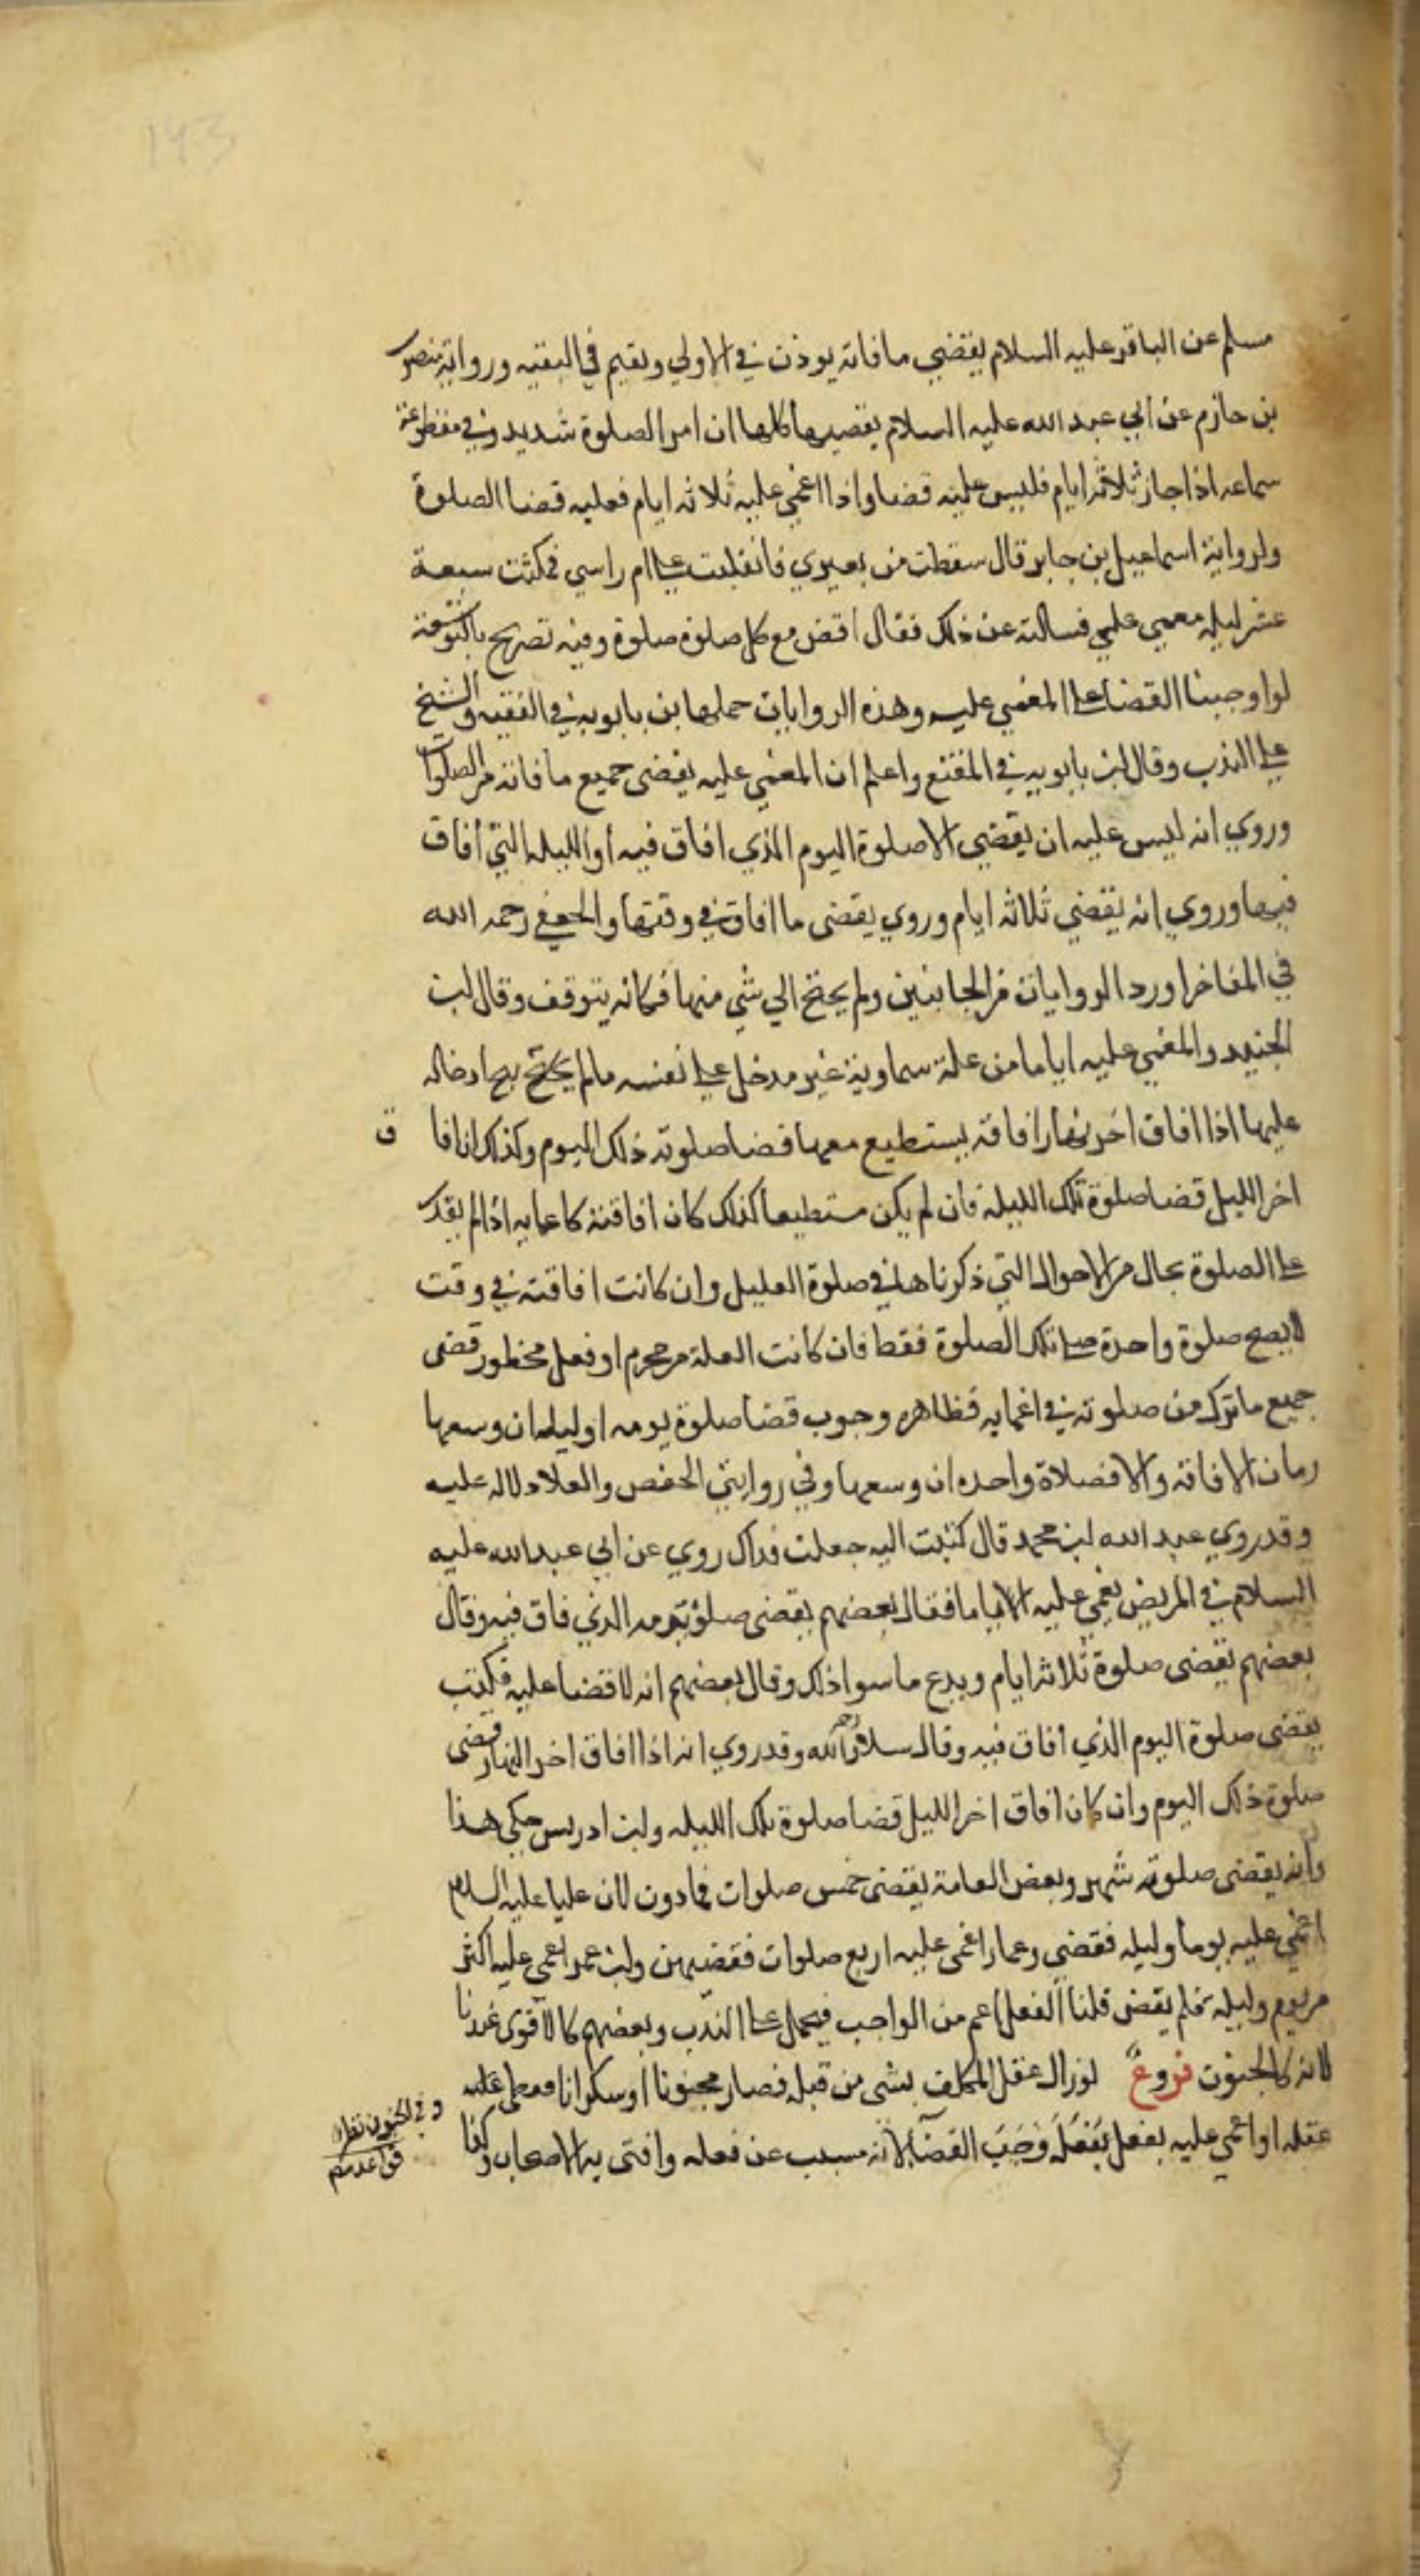 193
مسلم عن الباقر عليه السلام يقضي ما فاته يوذن في الاولي ويقيم في البقيه ورواية منصور
بن حازم عن ابي عبد الله عليه السلام يقضيها كلها ان امر الصلوة شديد وفي مقطوعة
سماعه اذا جاز ثلاثة ايام فليس عليه قضا واذا اغمي عليه ثلاثه ايام فعليه قضا الصلوة
ولرواية اسماعيل بن جابر قال سقطت من بعيري فانقلبت علي ام راسي فمكثت سبعة
عشر ليله مغمي علي فسالته عن ذلك فقال اقض مع كل صلوة صلوة وفيه تصريح بالتوسعة
لو اوجبنا القضا علي المغمي عليه وهذه الروايات حملها ابن بابويه في الفقيه والشيخ
علي الندب وقال ابن بابويه في المقنع واعلم ان المغمي عليه يقضى جميع ما فاته من الصلوات
وروي انه ليس عليه ان يقضي الا صلوة اليوم الذي افاق فيه او الليله التي افاق
فيها وروي انه يقضي ثلاثه ايام وروي يقضى ما افاق في وقتها والجعفي رحمه الله
في الفاخر اورد الروايات من الجانبين ولم يجنح الي شي منها فكانه يتوقف وقال ابن
الجنيد والمغمي عليه اياما من علة سماوية غير مدخل علي نفسه ما لم يبح ادخاله
عليها اذا افاق اخر نهار افاقة يستطيع معها قضا صلوته ذلك اليوم وكذلك ان افا ق
اخر الليل قضا صلوة تلك الليلة فان لم يكن مستطيعا كذلك كان افاقته كاغمايه اذا لم يقدر
علي الصلوة بحال من الاحوال التي ذكرناها في صلوة العليل وان كانت افاقته في وقت
لا يصح صلوة واحدة صلي تلك الصلوة فقط فان كانت العلة من محرم او فعل محظور قضى
جميع ما ترك من صلوته في اغمايه فظاهره وجوب قضا صلوة يومه او ليله ان وسعها
زمان الافاقه والا فصلاة واحده ان وسعها وفي روايتي الحفص والعلا دلاله عليه
وقد روي عبد الله بن محمد قال كتبت اليه جعلت فداك روي عن ابي عبد الله عليه
السلام في المريض يغمي عليه الاياما فقال بعضهم يقضى صلوة يومه الذي فاق فيه وقال
بعضهم يقضى صلوة ثلاثة ايام ويدع ما سوا ذلك وقال بعضهم انه لا قضا عليه فكتب
يقضى صلوة اليوم الذي افاق فيه وقال سلار رحمه الله وقد روي انه اذا افاق اخر النهار قضى
صلوة ذلك اليوم وان كان افاق اخر الليل قضا صلوة تلك الليله وابن ادريس حكي هذا
وانه يقضى صلوة شهر وبعض العامة يقضى خمس صلوات فما دون لان عليا عليه السلام
اغمي عليه يوما وليله فقضي وعمار اغمى عليه اربع صلوات فقضيهن وابن عمر اغمي عليه اكثر
من يوم وليلة فلم يقض قلنا الفعل اعم من الواجب فيحمل علي الندب وبعضهم كالاقوى عندنا
لانه كالجنون فروع لو زال عقل المكلف بشى من قبله فصار مجنونا او سكرانا فغطي علي
عقله او اغمي عليه بفعل يفعله وجب القضا لانه مسبب عن فعله وافتى به الاصحاب وكذا
وفي الجنون نظر
قواعد